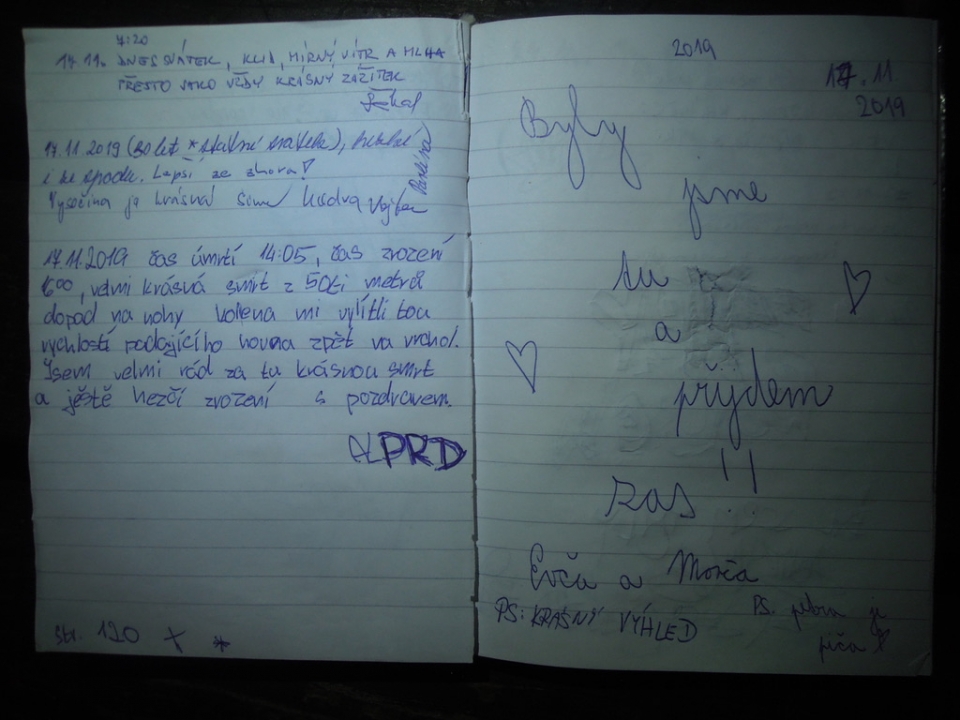 7:20
17.11. DNES SVÁTEK, KLID, MÍRNÝ VÍTR A MLHA
PŘESTO JAKO VŽDY KRÁSNÝ ZÁŽITEK
17.11.2019 (30 let
i ze spodu. Lepší ze shora!
Vysočina je krásná
17.11.2019 čas úmrtí 14:05, čas zrození
600, velmi krásná smrt z 50ti metrů
dopad na nohy kolena mi vylítli tou
rychlostí padajícího hovna zpět na vrchol.
Jsem velmi rád za tu krásnou smrt
a ještě hezčí zrození s pozdravem.
PRD
str. 120
2019
17.11
2019
Byly
jsme
tu
a
přijdem
zas!!
Evča a Monča
PS: KRÁSNÝ VÝHLED
PS. je
piča